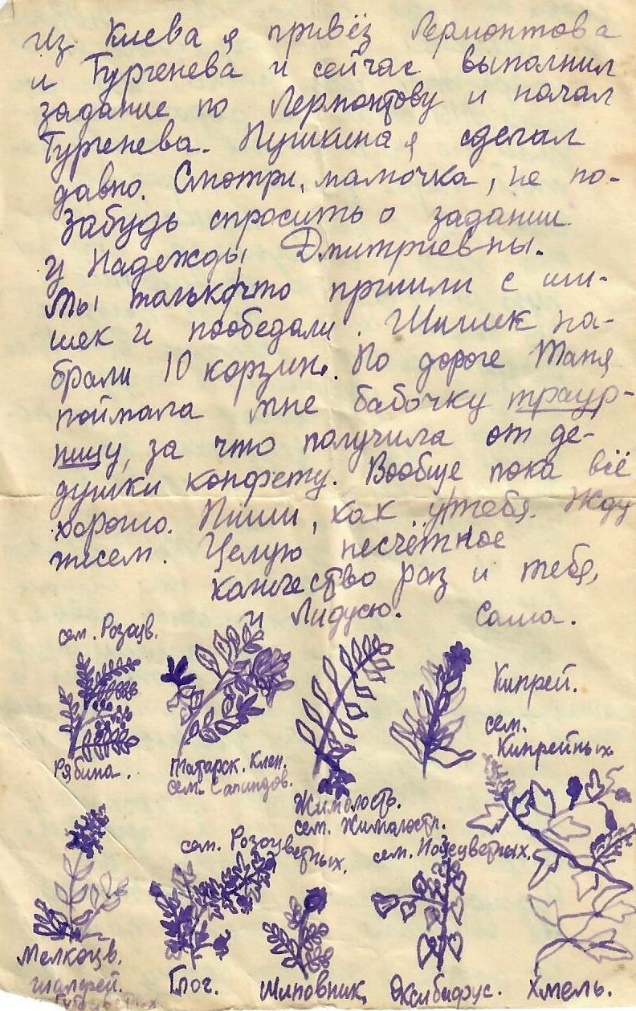 Из Киева я привёз Лермонтова
и Тургенева и сейчас выполнил
задание по Лермонтову и начал
Тургенева. Пушкина я сделал
давно. Смотри, мамочка, не по-
забудь спросить о задании
у Надежды Дмитриевны.
Мы только что пришли с ши-
шек и пообедали. Шишек на-
брали 10 корзин. По дороге Таня
поймала мне бабочку траур-
ницу, за что получила от де-
душки конфету. Вообще пока всё
хорошо. Пиши, как у тебя. Жду
писем. Целую несчётное
количество раз и тебя,
и Лидусю. Саша.
сем. Розоцв.
Рябина.
Татарск. Клен.
сем. Сапиндов.
Жимолость.
сем. Жималостн.
Кипрей.
сем.
Кипрейных
Мелкоцв.
сем. Розоцветных.
Глог.
Шиповник
сем.
Хмель.